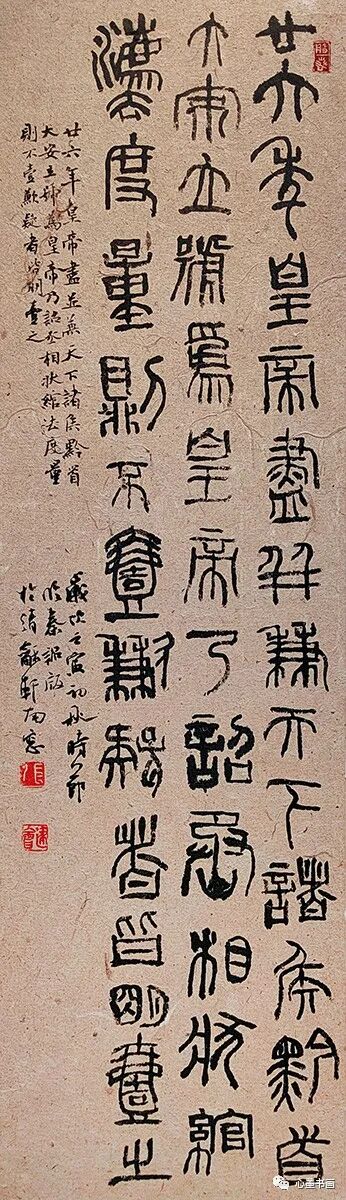 廿六年皇帝盡并兼天下諸侯黔首
大安立號為皇帝乃詔丞相狀綰
灋度量則不壹歉疑者皆明壹之
廿六年皇帝盡並兼天下諸侯黔首
大安立號為皇帝乃詔丞相狀綰法度量
則不壹歉疑者皆明壹之
歲次壬寅初秋時節
臨秦詔版
於龢軒南窗
心墨书画